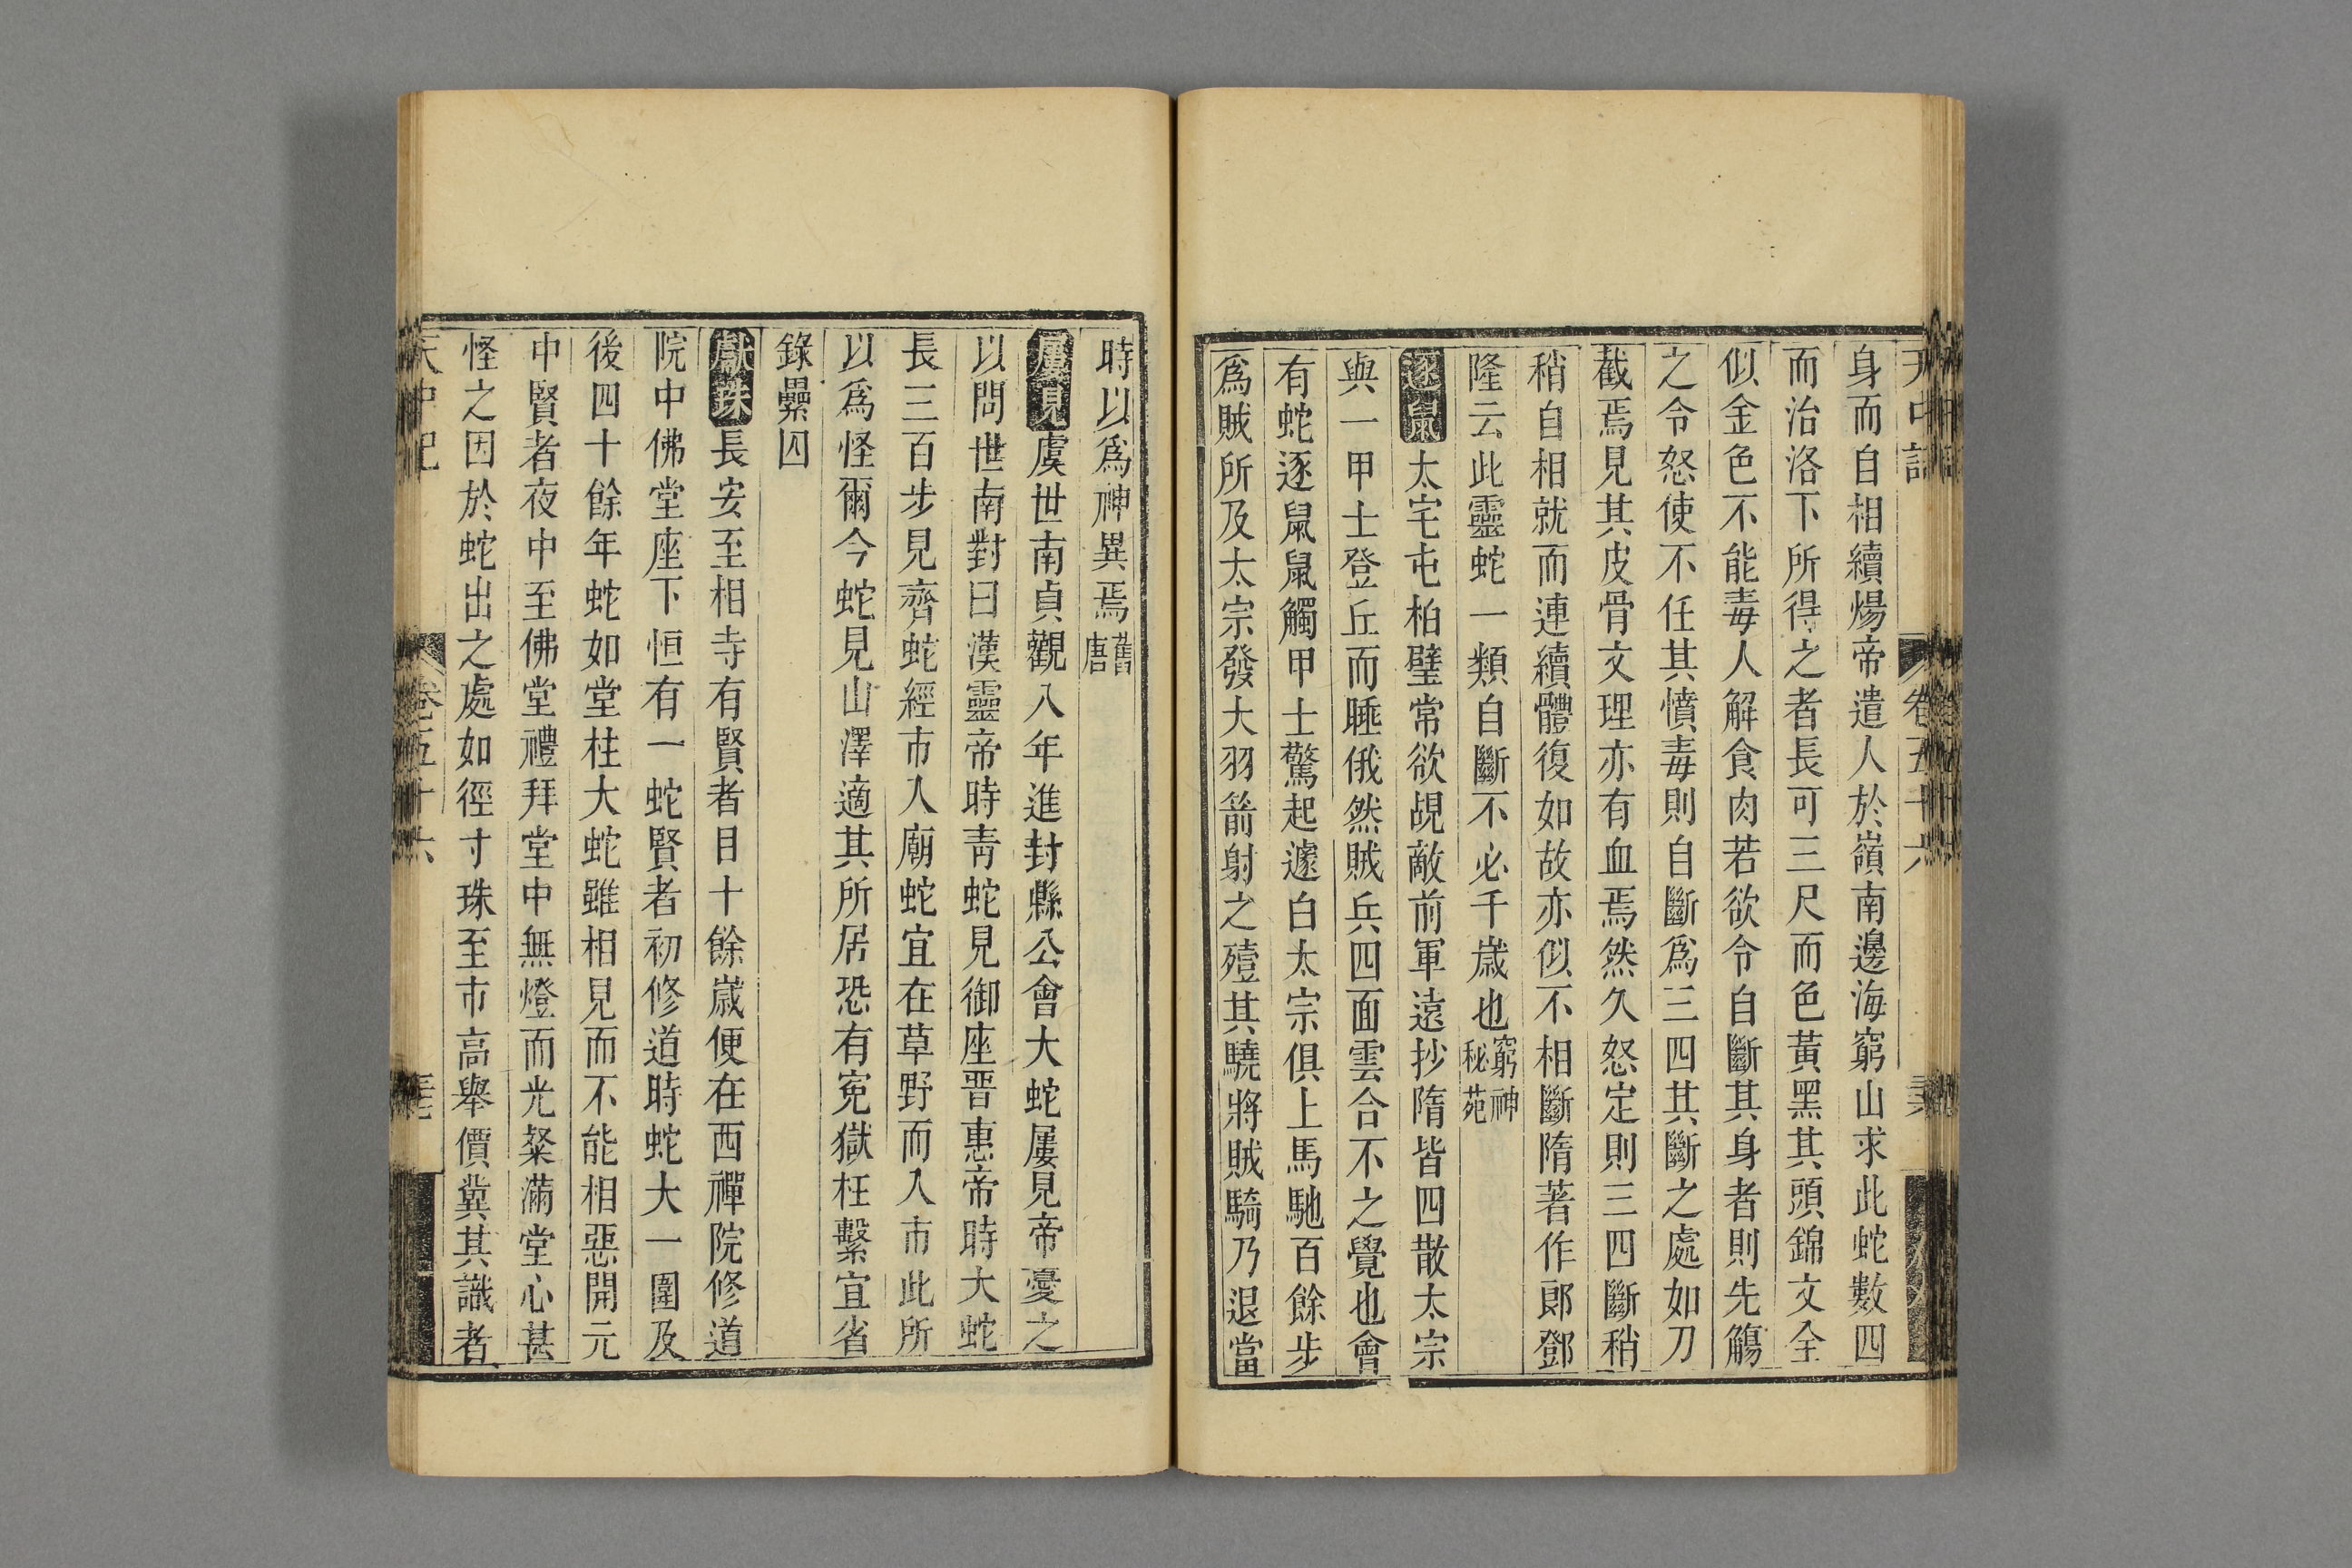 天中記 卷五十六
身而自相續煬帝遣人於嶺南邊海窮山求此蛇數四
而治洛下所得之者長可三尺而色黃黑其頭錦文全
似金色不能毒人解食肉若欲令自斷其身者則先觴
之令怒使不任其憤毒則自斷爲三四其斷之處如刀
截焉見其皮骨文理亦有血焉然久怒定則三四斷稍
稍自相就而連續體復如故亦似不相斷隋著作郎鄧
隆云此靈蛇一類自斷不必千歲也窮神秘苑
逐鼠太宅屯柏壁常欲覘敵前軍遠抄隋皆四散太宗
與一甲士登丘而睡俄然賊兵四面雲合不之覺也會
有蛇逐鼠鼠觸甲士驚起遽白太宗俱上馬馳百餘步
爲賊所及太宗發大羽箭射之殪其驍將賊騎乃退當
時以爲神異焉舊唐
屢見虞世南貞觀八年進封縣公會大蛇屢見帝憂之
以問世南對曰漢靈帝時青蛇見御座晋惠帝時大蛇
長三百步見齊蛇經市入廟蛇宜在草野而入市此所
以爲怪爾今蛇見山澤適其所居恐有寃獄枉繫宜省
錄纍囚
獻珠長安至相寺有賢者目十餘歲便在西禪院修道
院中佛堂座下恒有一蛇賢者初修道時蛇大一圍及
後四十餘年蛇如堂柱大蛇雖相見而不能相惡開元
中賢者夜中至佛堂禮拜堂中無燈而光粲滿堂心甚
怪之因於蛇出之處如徑寸珠至市高舉價冀其識者
天中記 卷五十六